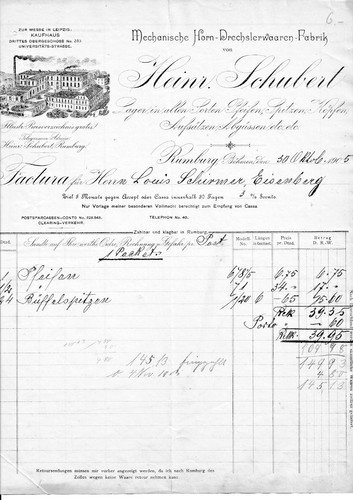 6.-
ZUR MESSE IN LEIPZIG:
KAUFHAUS
DRITTES OBERGESCHOSS No. 253
UNIVERSITÄTS-STRASSE.
Mechanische Horn-Drechslerwaaren-Fabrik
von
Heinr. Schubert
Lager in allen Sorten Pfeifen, Spitzen, Köpfen,
Aufsätzen, Abgüssen etc. etc.
Illustr. Preisverzeichniss gratis.
Telegramm-Adresse:
Heinr. Schubert, Rumburg.
Rumburg, Böhmen, den 30 Oktob. 1905
Factura für Herrn Louis Schirmer, Eisenberg
Ziel 3 Monate gegen Accept oder Cassa innerhalb 30 Tagen 3 % Sconto.
Nur Vorlage meiner besonderen Vollmacht berechtigt zum Empfang von Cassa
POSTSPARCASSEN-CONTO No.
CLEARING-VERKEHR.
TELEPHON No. 40.
Zahlbar und klagbar in Rumburg.
Sandte auf Ihre werthe Order, Rechnung u. Gefahr per Post
1 Packet
Dtzd. Modell No. Preis per Dtzd. Betrag
1 Pfeifen 6/8/5 6.75 6.75
1/2 " 71 34.- 17.-
24 Büffelspitzen 1/20 6 -65 15.60
Rmk 39.35
Porto " -60
Rmk. 39.95
145 13
149 93
4 80
145.13
Reinsersendungen müssen mir vorher angezeigt werden, da ich nach Rumburg des
Zolles wegen keine Waare retour nehmen kann.